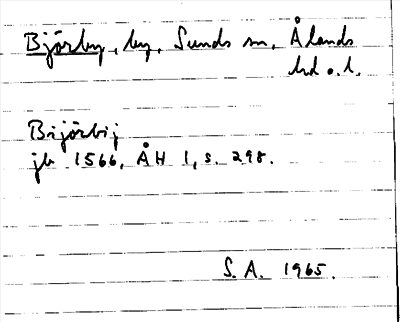 Björby, by, Sunds sn, Ålands
hd o. l.
Bijörbij
jb 1566, ÅH 1, s. 298.
S. A. 1965.